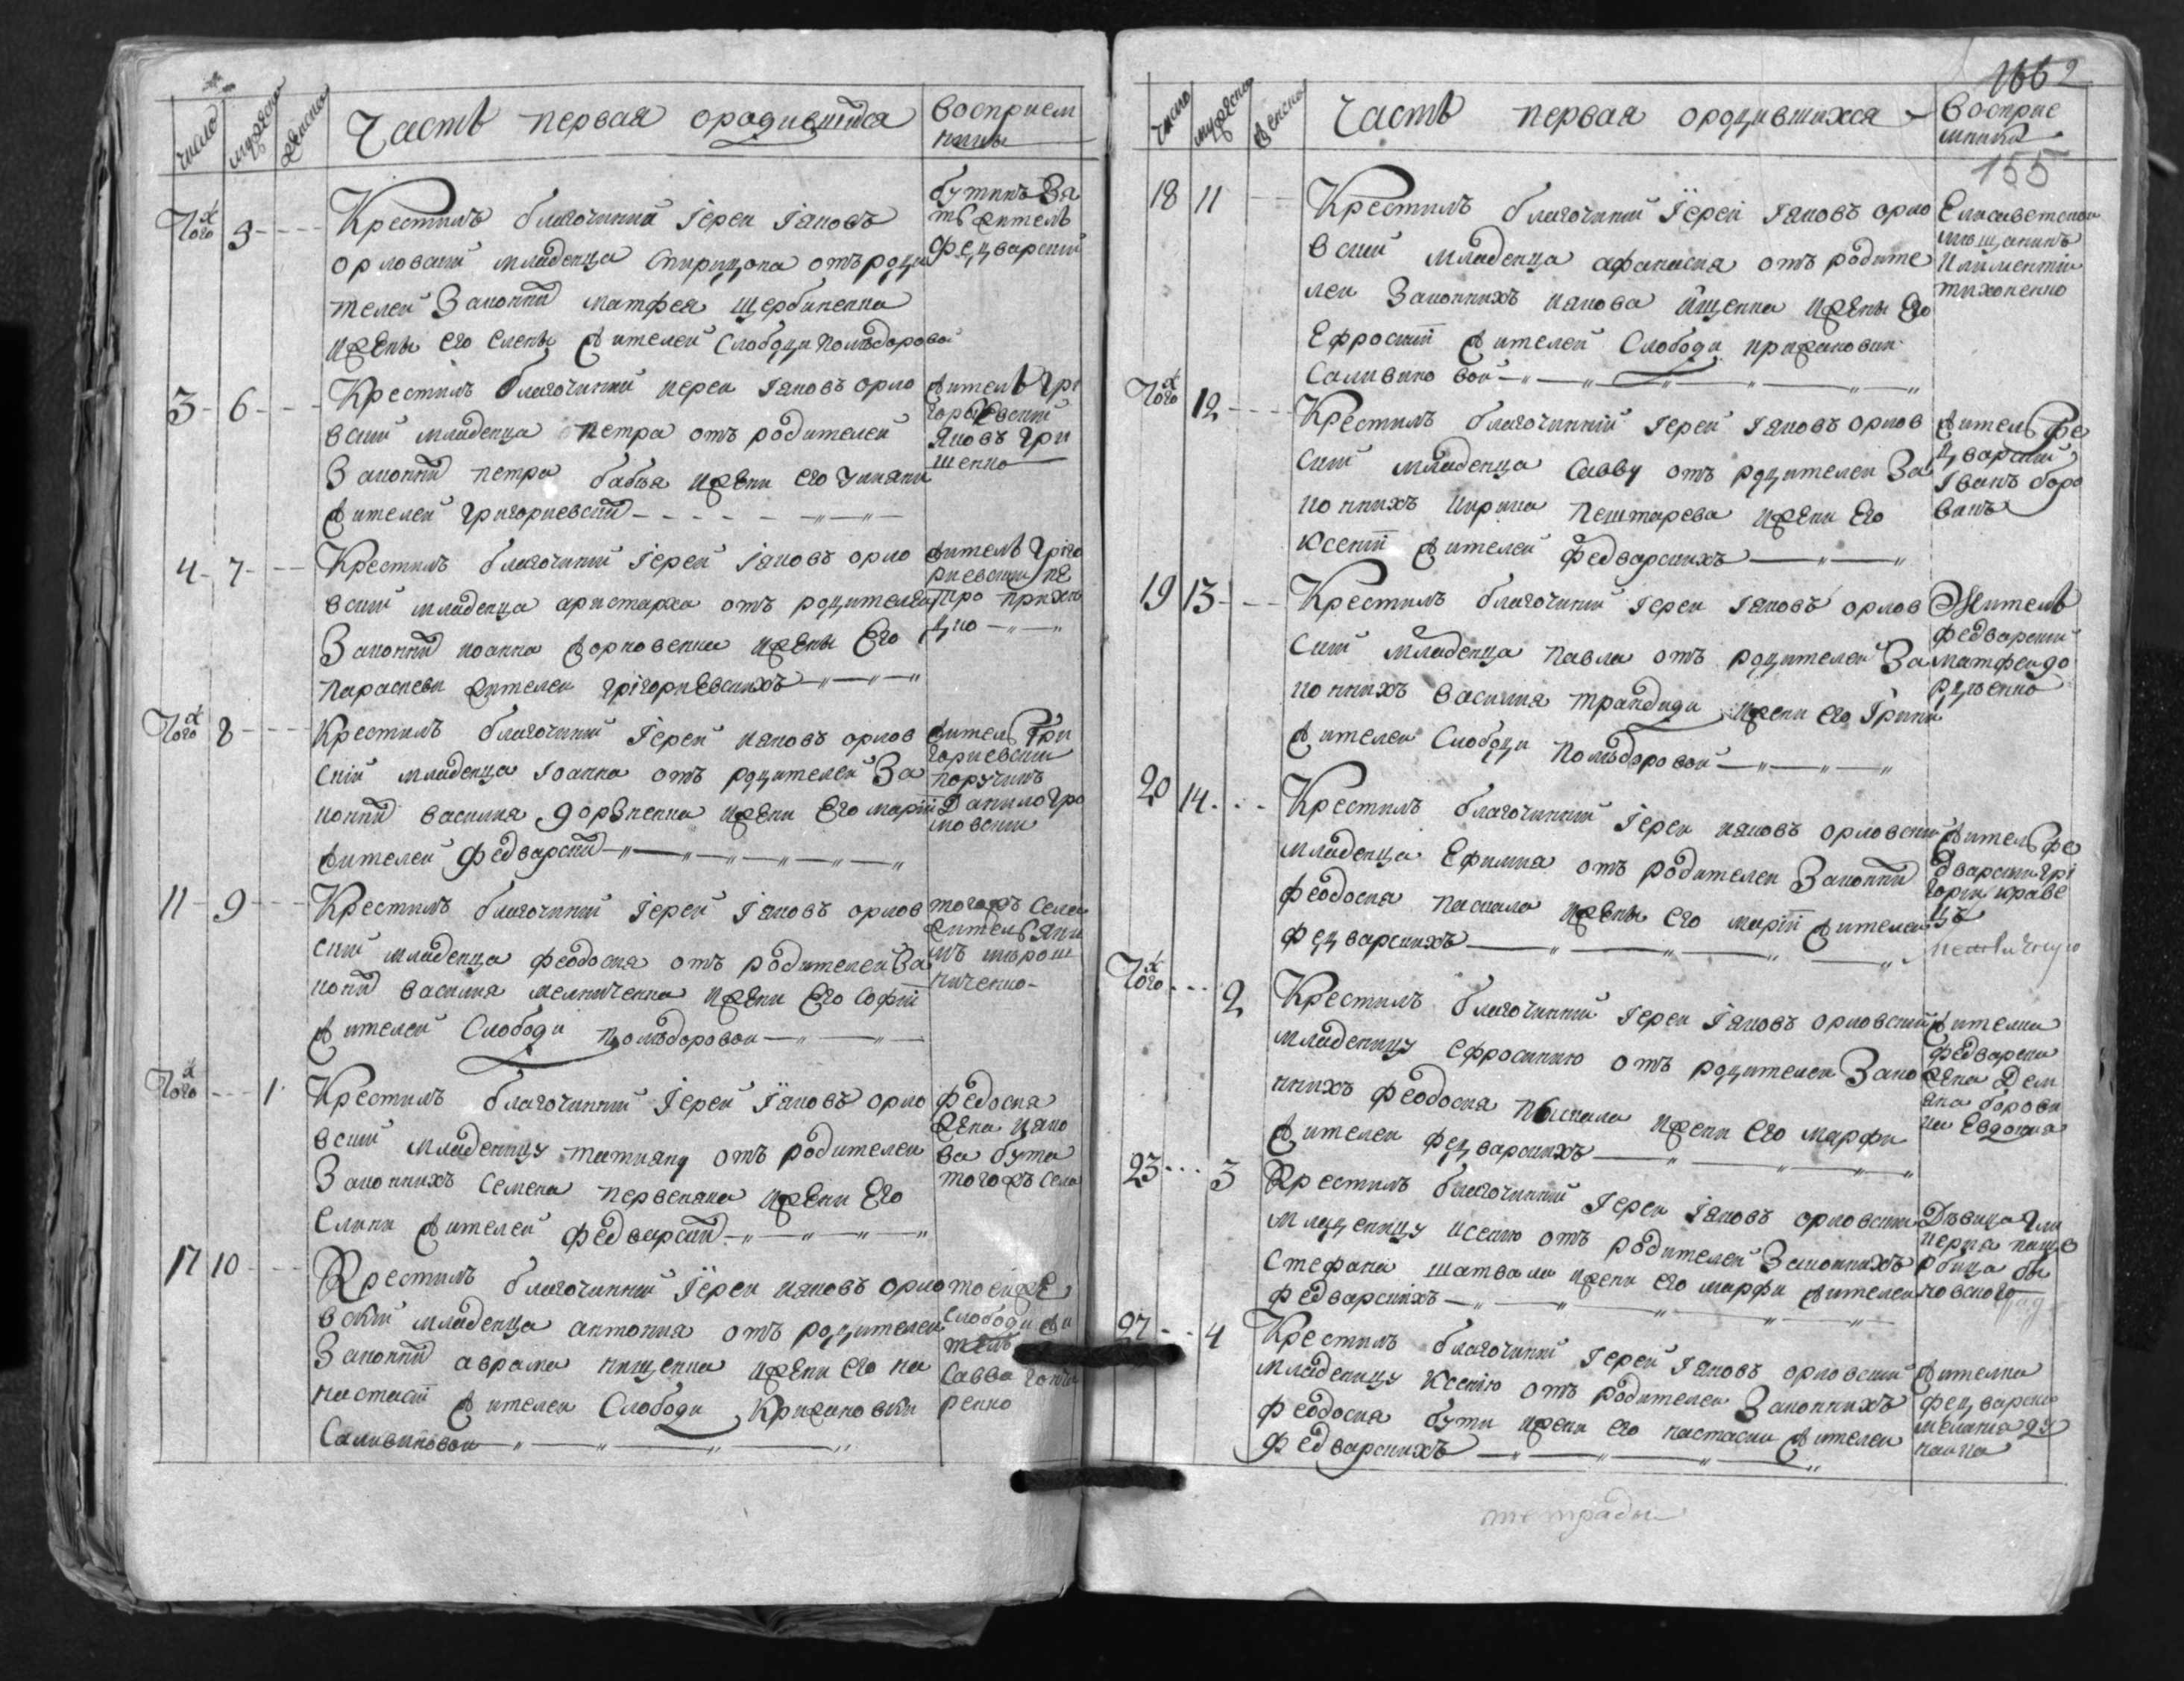 число мужеска женска Часть первая ородившихся восприем
ники
Тогож 5 Крестилъ благочинній Іереи Іяковъ
орловскій младенца Спиридона отъ роди
телей Законних матфея щербиненка
ижены его елены жителей Слободи Полъдоровой
бутикъ За
тъ житель
федварскій
3 6 Крестилъ благочинний иереи Іяковъ орло
вский младенца петра отъ родителей
Законних петра бабья ижени его улияни
жителей григориевских
житель гри
гориевский
Яковъ гри
щенко
4 7 Крестилъ благочиний Іерей Іяковъ орло
вский младенца аристарха отъ родителей
Законних иоанна жорновенка ижены Его
параскеви жителеи грігориевскихъ
житель гріго
риевский пе
тро прихо
дко
Тогож 8 Крестилъ благочиний Іерей ияковъ орлов
скій младенца Іоанна отъ родителей За
конних василия дорженка ижени Его маріи
жителей федварских
житель гри
гориевский
поручикъ
Данило гро
мовский
11 9 Крестилъ благочиний Іерей Іяковъ орлов
ский младенца феодосия отъ родителей За
конних василия мелниченка ижени Его софіи
жителей Слободи полъдоровои
тогожъ села
житель яки
мъ мірош
ниченко
Тогож 1 Крестилъ благочинний Іерей Іяковъ орло
вский младеницу татияну отъ родителеи
Законнихъ семена первеняка ижени Его
Елини жителей федварских
федосия
жена ияко
ва бута
тогожъ села
17 10 Крестилъ благочинний Іереи ияковъ орло
вский младенца антония отъ родителеи
Законних аврама нищенка ижени его на
настасіи жителеи Слободи Крижановки
Саливоновои
тоейже
слободи жи
тель
Савва гонча
ренко
1662
число мужеска женска Часть первая ородившихся восприе
мники
155
18 11 Крестилъ благочиний Іерей Іяковъ орло
вский младенца афанасия отъ родите
леи Законнихъ иякова ищенка ижены Его
Ефросиніи жителей Слободи крижановки
Саливоно вой
Елисаветскои
мѣщанинъ
Климентіи
тихоненко
Тогож 12 Крестилъ благочинній Іерей Іяковъ орлов
ский младенца Савву отъ родителеи За
конихъ кирила пештарева ижени Его
ксеніи жителей федварскихъ
житель фе
дварский
Іванъ боро
ванъ
19 13 Крестилъ благочиний Іереи Іяковъ орлов
ский младенца павла отъ родителей За
конихъ василия трандиди ижени его Ірини
жителеи Слободи Полъдоровой
Житель
федварский
матфеи до
рценко
20 14 Крестилъ благочинний Іереи ияковъ орловский
младенца Ефимия отъ родителеи Законних
феодосия паскала ижены его маріи жителеи
федварскихъ
житель фе
дварский грі
горіи краве
цъ
Тогож 2 Крестилъ благочинний Іереи Іяковъ орловский
младеницу ефросинию отъ родителеи Зако
ннихъ феодосия паскала ижени его марфи
жителеи федварскихъ
жителка
федварска
жена Дем
яна борови
ка Евдокия
23 3 Крестилъ благочинний Іереи Іяковъ орловский
младеницу ксению отъ родителей Законнихъ
Стефана шатвали ижени его марфи жителеи
федварскихъ
Дѣвица гли
керия паще
рбица бы
ковского
27 4 Крестилъ благочиний Іерей Іяковъ орловский
младеницу Ксенію отъ родителеи Законнихъ
феодосия бути ижени его настасии жителеи
федварскихъ
жителка
федварска
мелания ду
наика
тетради